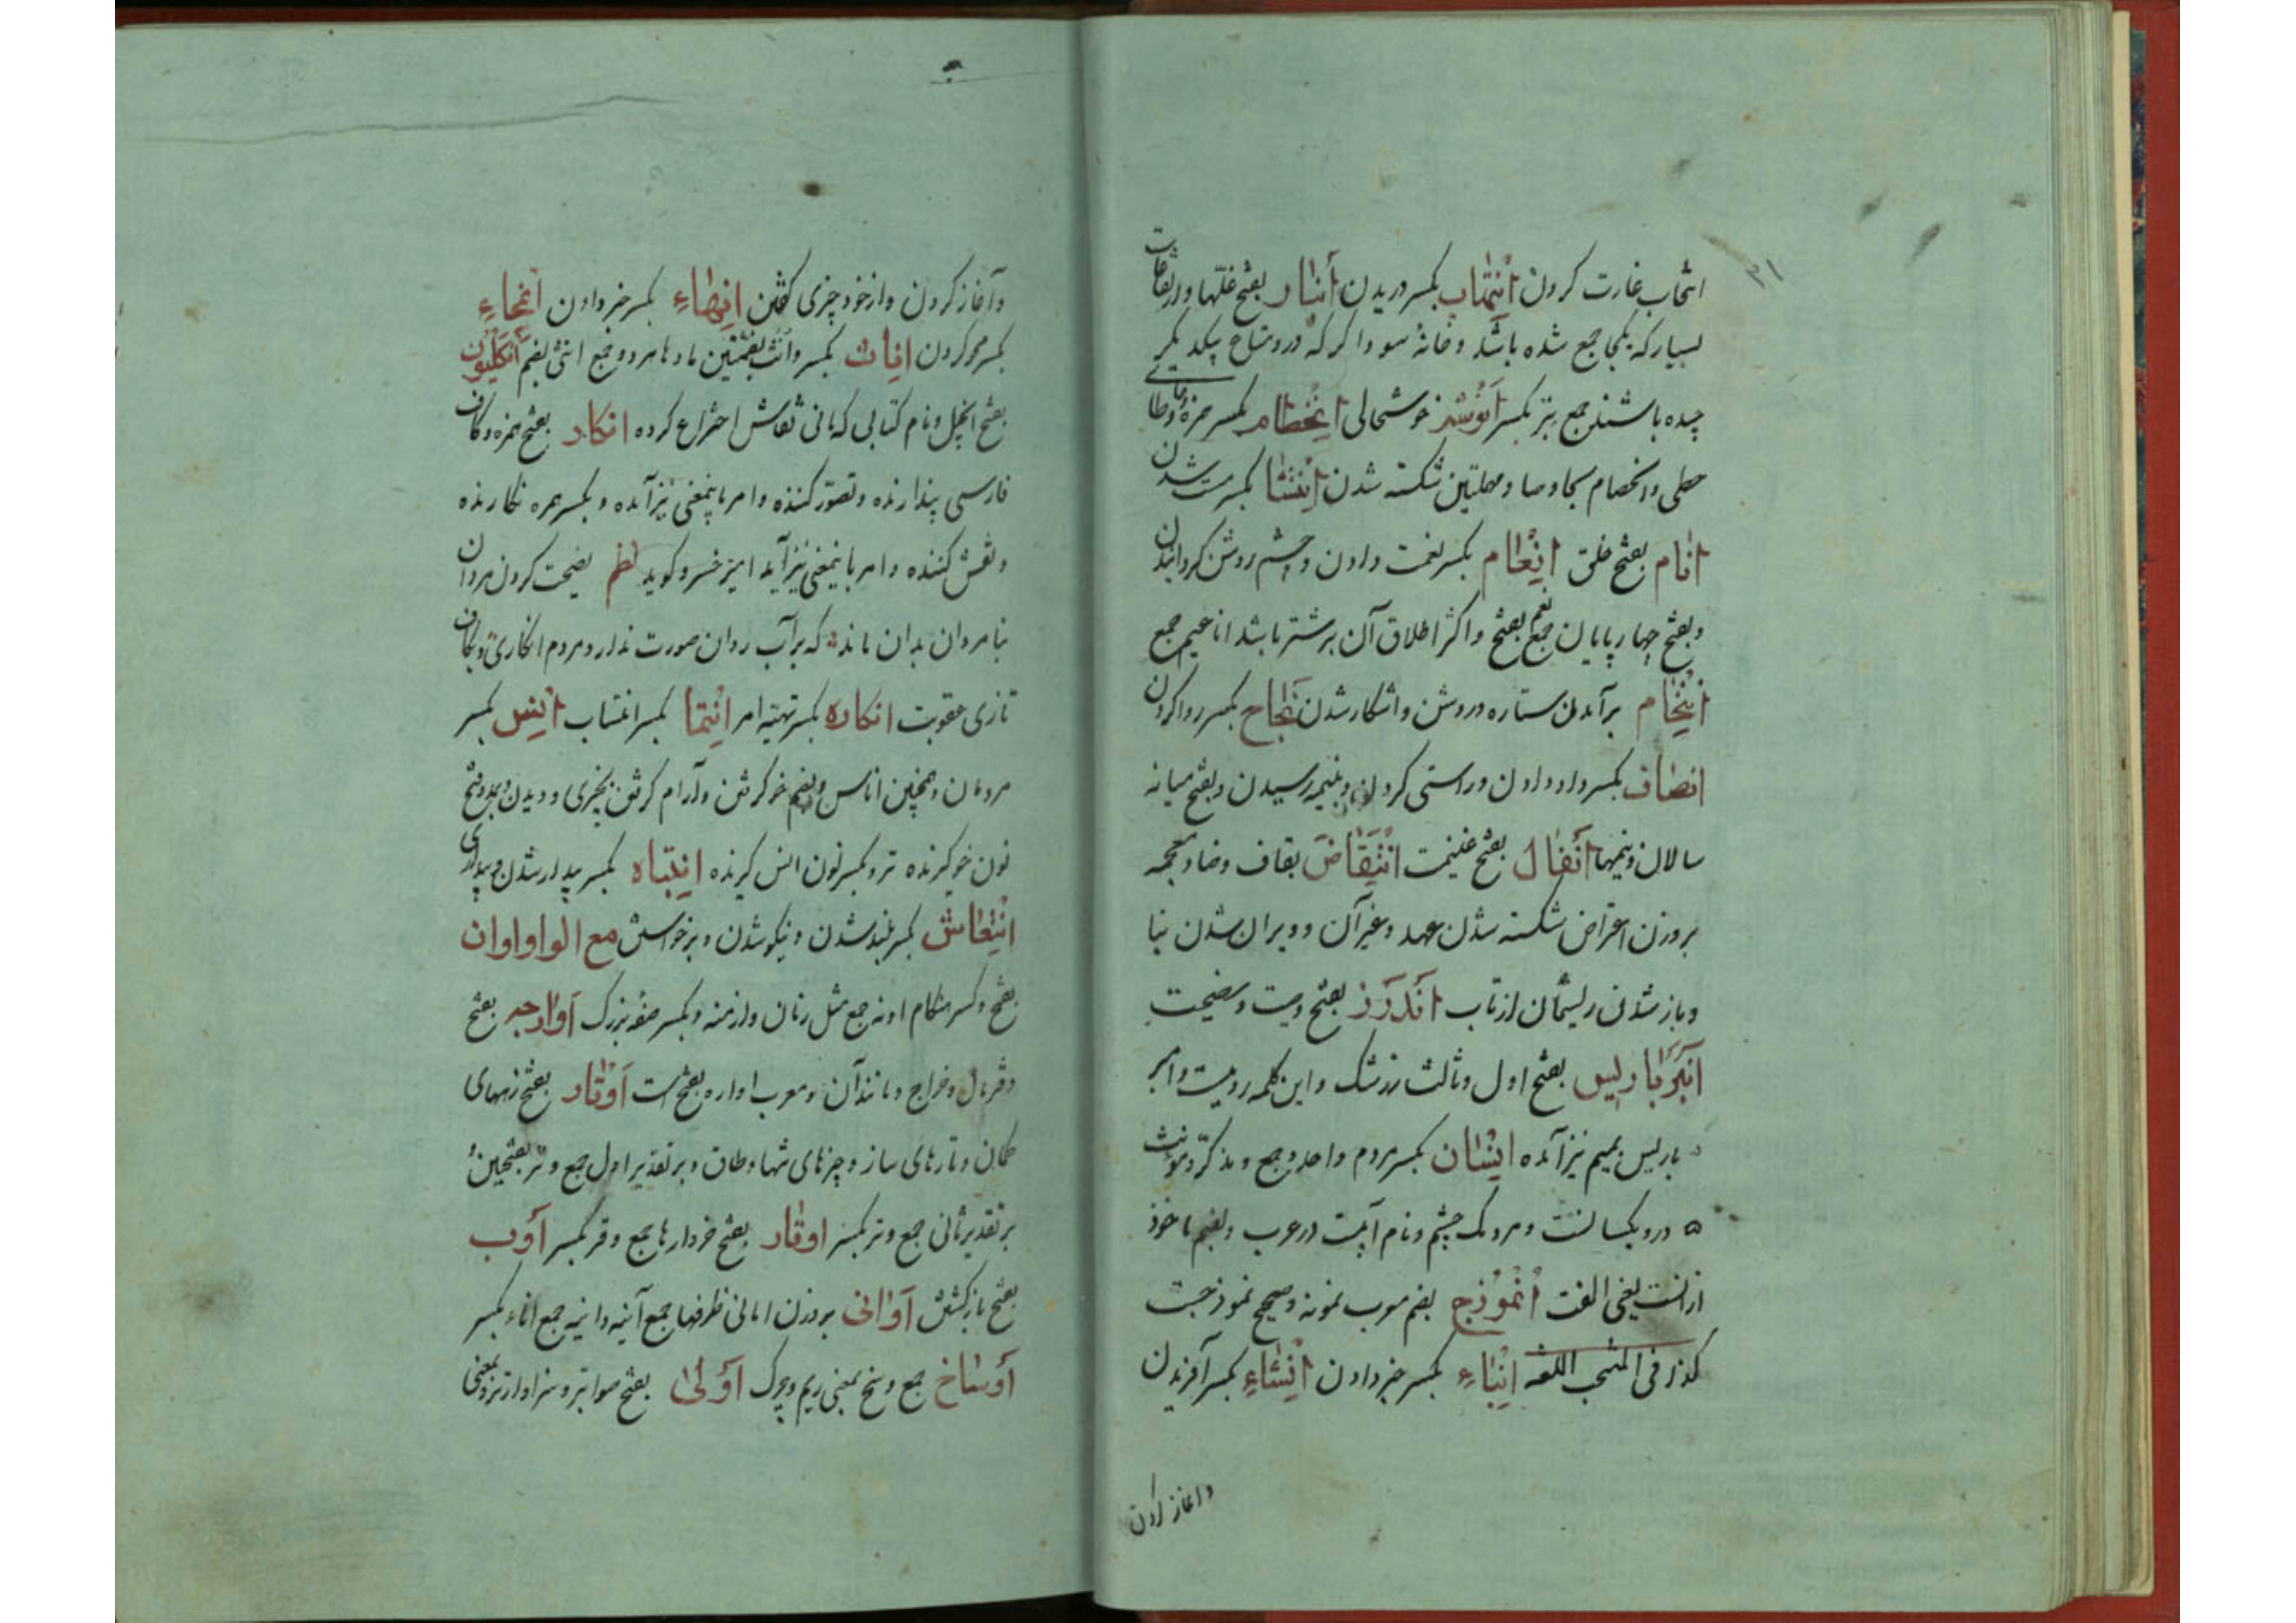 ۲۱
انتحاب غارت کردن انتهاب بکسر دریدن أنبار بفتح غلّها و ارتفاعات
بسیار که یکجا جمع شده باشد و خانهٔ سوداگر که درو متاع بیکدیگر
چیده باشند جمع نبر بکسر انوشه خوشحالی انحطام بکسر همزه و حای و طای
حطی و انخصام بخا و صاد مهملتین شکسته شدن انتشا بکسر مست شدن
انام بفتح خلق انعام بکسر نعمت دادن و چشم روشن گردانیدن
و بفتح چهارپایان جمع نعم بفتح و اکثر اطلاق آن بر شتر باشد اناعیم جمع
انجام برآمدن ستاره و روشن و اشکار شدن نجاح بکسر روا کردن
انصاف بکسر داد دادن و راستی کردن و بنیمه رسیدن و بفتح میانه
سالان و نیمها أنفال بفتح غنیمت انتقاض بقاف و ضاد معجمه
بروزن اعتراض شکسته شدن عهد و غیر آن و ویران شدن بنا
و باز شدن ریسمان از تاب أندرز بفتح وصیت و نصیحت
أنبرباریس بفتح اول و ثالث زرشک و این کلمه رومیست و امبر
باریس بمیم نیز آمده انسان بکسر مردم واحد و جمع و مذکّر و مؤنث
درو یکسانست و مردمک چشم و نام آبیست در عرب و بضم ماخوذ
از انست یعنی الفت أنموذج بضم معرب نمونه و صحیح نموذجست
کذا فی المنتخب اللغه انباء بکسر خبر دادن انشاء بکسر آفریدن
و اغاز کردن
و آغاز کردن و از خود چیزی گفتن انهاء بکسر خبر دادن انحاء
بکسر محو کردن اناث بکسر و انث بضمتین مادها هر دو جمع انثی بضم انگلیون
بفتح انجیل و نام کتابی که مانی نقاش اختراع کرده انگار بفتح همزه و کاف
فارسی پندارنده و تصوّر کننده و امر باینمعنی نیز آمده و بکسر همزه نگارنده
و نقش کننده و امر باینمعنی نیز آید امیر خسرو گوید نظم نصیحت کردن مردان
بنامردان بدان ماند که بر آب روان صورت ندارد مردم انگاری و بکاف
تازی عقوبت انکاره بکسر تهیه امر انتما بکسر انتساب انس بکسر
مردمان و همچنین اناس و بضم خو گرفتن و آرام گرفتن بچیزی و دیدن و بفتح
نون خو گیرنده تر و بکسر نون انس گیرنده انتباه بکسر بیدار شدن و بیداری
انتعاش بکسر بلند شدن و نیکو شدن و برخواستن مع الواو اوان
بفتح و کسر هنگام اونه جمع مثل زمان و ازمنه و بکسر صفه بزرگ أوارجه بفتح
دفتر مال و خراج و مانند آن و معرب اواره بفتح است أوتار بفتح زههای
کمان و تارهای ساز و چیزهای تنها و طاق و بر تقدیر اول جمع وتر بفتحتین و
بر تقدیر ثانی جمع وتر بکسر اوقار بفتح خروارها جمع وقر بکسر أوب
بفتح بازگشتن أوانی بروزن امانی ظرفها جمع آنیه و انیه جمع اناء بکسر
أوساخ جمع وسخ بمعنی ریم و چرک أولی بفتح صوابتر و سزاوارتر و بمعنی